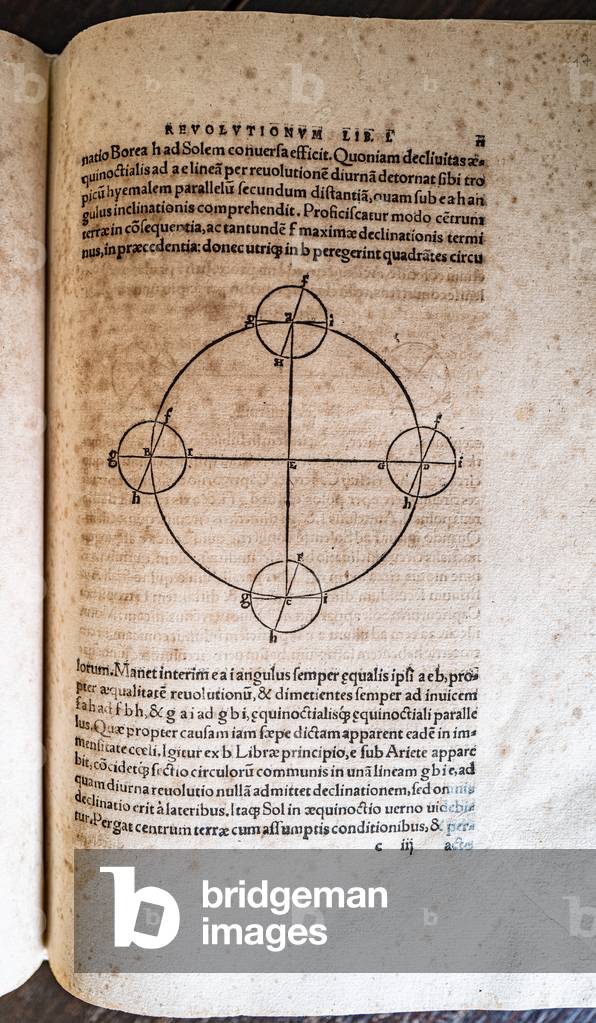 REVOLVTIONVM LIB. I.
natio Borea h ad Solem conuersa efficit. Quoniam decliuitas æ-
quinoctialis ad a e lineã per reuolutionẽ diurnã detornat sibi tro
picũ hyemalem parallelũ secundum distantiã, quam sub e a h an
gulus inclinationis comprehendit. Proficiscatur modo cẽtrum
terræ in cõsequentia, ac tantundẽ f maximæ declinationis termi
nus, in præcedentia: donec utriqꝫ in b peregerint quadrãtes circu
f
g a i
H
f f
g B r E G D i
h h
F
g c i
h
lorum. Manet interim e a i angulus semper ęqualis ipsi a e b, pro-
pter æqualitatẽ reuolutionũ, & dimetientes semper ad inuicem
f a h ad f b h, & g a i ad g b i, ęquinoctialisqꝫ ęquinoctiali paralle
lus. Quæ propter causam iam sæpe dictam apparent eadẽ in im-
mensitate cœli. Igitur ex b Libræ principio, e sub Ariete appare
bit, cõcidetqꝫ sectio circulorũ communis in unã lineam g b i e, ad
quam diurna reuolutio nullã admittet declinationem, sed omnis
declinatio erit à lateribus. Itaqꝫ Sol in æquinoctio uerno uidebi-
tur. Pergat centrum terræ cum assumptis conditionibus, & pera-
c iij actis
bridgeman
images